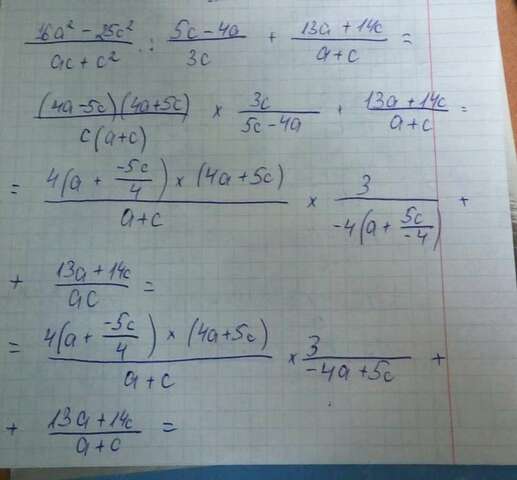 (16a² - 25c²)/(ac + c²) : (5c - 4a)/(3c) + (13a + 14c)/(a + c) =
((4a - 5c)(4a + 5c))/(c(a + c)) × (3c)/(5c - 4a) + (13a + 14c)/(a + c) =
= (4(a + (-5c)/4) × (4a + 5c))/(a + c) × 3/(-4(a + (5c)/(-4))) +
+ (13a + 14c)/(ac) =
= (4(a + (-5c)/4) × (4a + 5c))/(a + c) × 3/(-4a + 5c) +
+ (13a + 14c)/(a + c) =